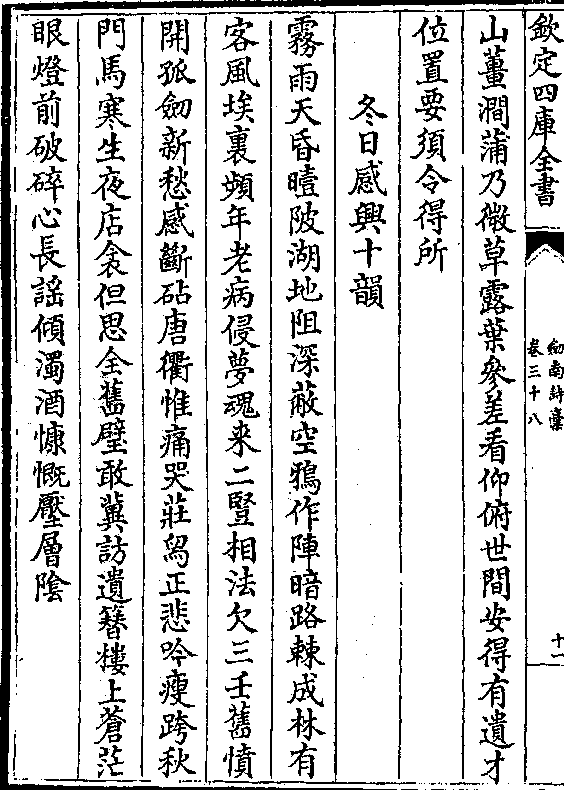 欽定四庫全書
劒南詩藁
卷三十八
十一
山薑澗蒲乃微草露葉參差看仰俯世間安得有遺才
位置要須令得所
冬日感興十韻
霧雨天昏曀陂湖地阻深蔽空鴉作陣暗路棘成林有
客風埃裏頻年老病侵夢魂来二豎相法欠三壬舊憤
開孤劒新愁感斷砧唐衢惟痛哭莊舄正悲吟瘦跨秋
門馬寒生夜店衾但思全舊璧敢冀訪遺簮樓上蒼茫
眼燈前破碎心長謡傾濁酒慷慨壓層陰